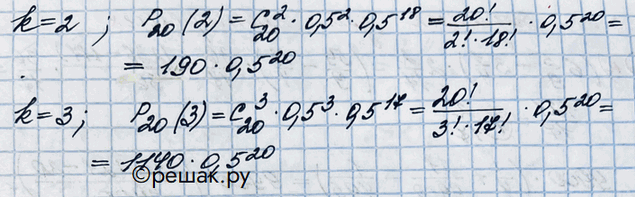 k=2 ; P₂₀(2) = C²₂₀ · 0,5² · 0,5¹⁸ = 20!/(2! · 18!) · 0,5²⁰ =
= 190 · 0,5²⁰
k=3 ; P₂₀(3) = C³₂₀ · 0,5³ · 0,5¹⁷ = 20!/(3! · 17!) · 0,5²⁰ =
= 1140 · 0,5²⁰
©решак.ру